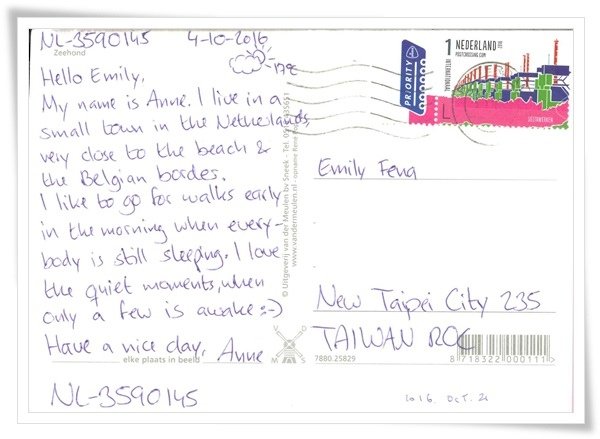 NL-3590145 4-10-2016
Zeehond
17°C
Hello Emily,
My name is Anne. I live in a
small town in the Netherlands
very close to the beach &
the Belgian border.
I like to go for walks early
in the morning when every-
body is still sleeping. I love
the quiet moments, when
only a few is awake :-)
Have a nice day, Anne
elke plaats in beeld
NL-3590145
© Uitgeverij van der Meulen bv Sneek - Tel.
www.vandermeulen.nl - opname René
M S
7880.25829
PRIORITY
1 NEDERLAND
POSTCROSSING.COM
INTERNATIONAAL
Emily Feng
New Taipei City 235
TAIWAN ROC
8 718322 000111 >
2016. OCT. 21